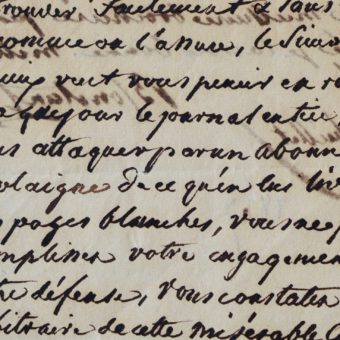 trouver facilement & sans
comme on l'assure, le Sieur
aux veut vous punir en re
que jour le journal entier,
us attaquer par un abonn
plaigne de ce qu'en lui liv
s pages blanches, vous ne p
mplissez votre engagemen
tre défense, vous constater
bitraire de cette misérable C